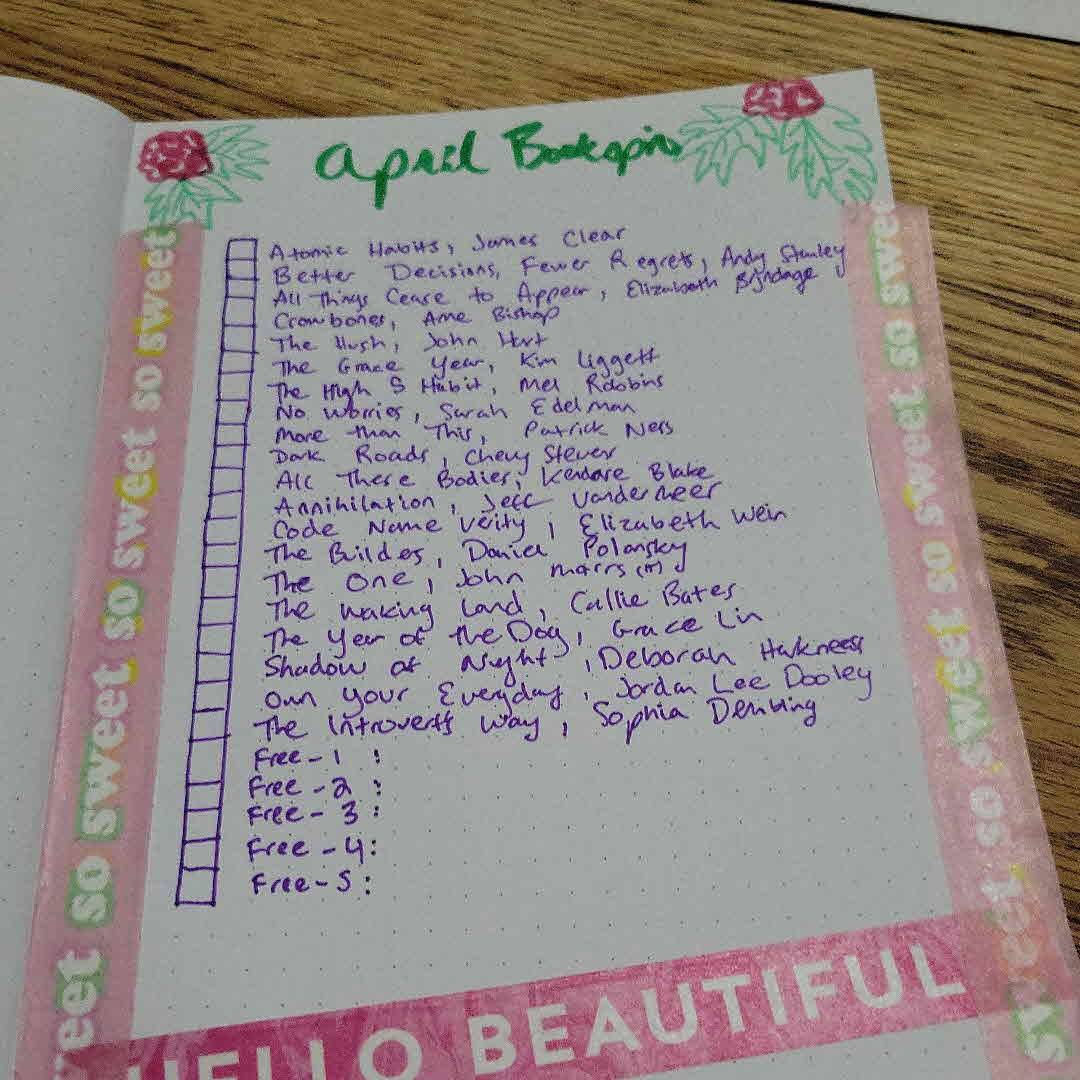 April Bookspin
Atomic Habits, James Clear
Better Decisions, Fewer Regrets, Andy Stanley
All Things Cease to Appear, Elizabeth Brundage
Crowbones, Anne Bishop
The Hush, John Hart
The Grace Year, Kim Liggett
The High 5 Habit, Mel Robbins
No Worries, Sarah Edelman
More than This, Patrick Ness
Dark Roads, Chevy Stevens
All These Bodies, Kendare Blake
Annihilation, Jeff Vandermeer
Code Name Verity, Elizabeth Wein
The Builders, Daniel Polansky
The One, John Marrs (M)
The Waking Land, Callie Bates
The Year of the Dog, Grace Lin
Shadow of Night, Deborah Harkness
Own Your Everyday, Jordan Lee Dooley
The Introvert's Way, Sophia Dembling
Free-1 :
Free-2 :
Free-3 :
Free-4:
Free-5:
HELLO BEAUTIFUL
so sweet so sweet so sweet so sweet
so sweet so sweet so sweet so sweet so sweet